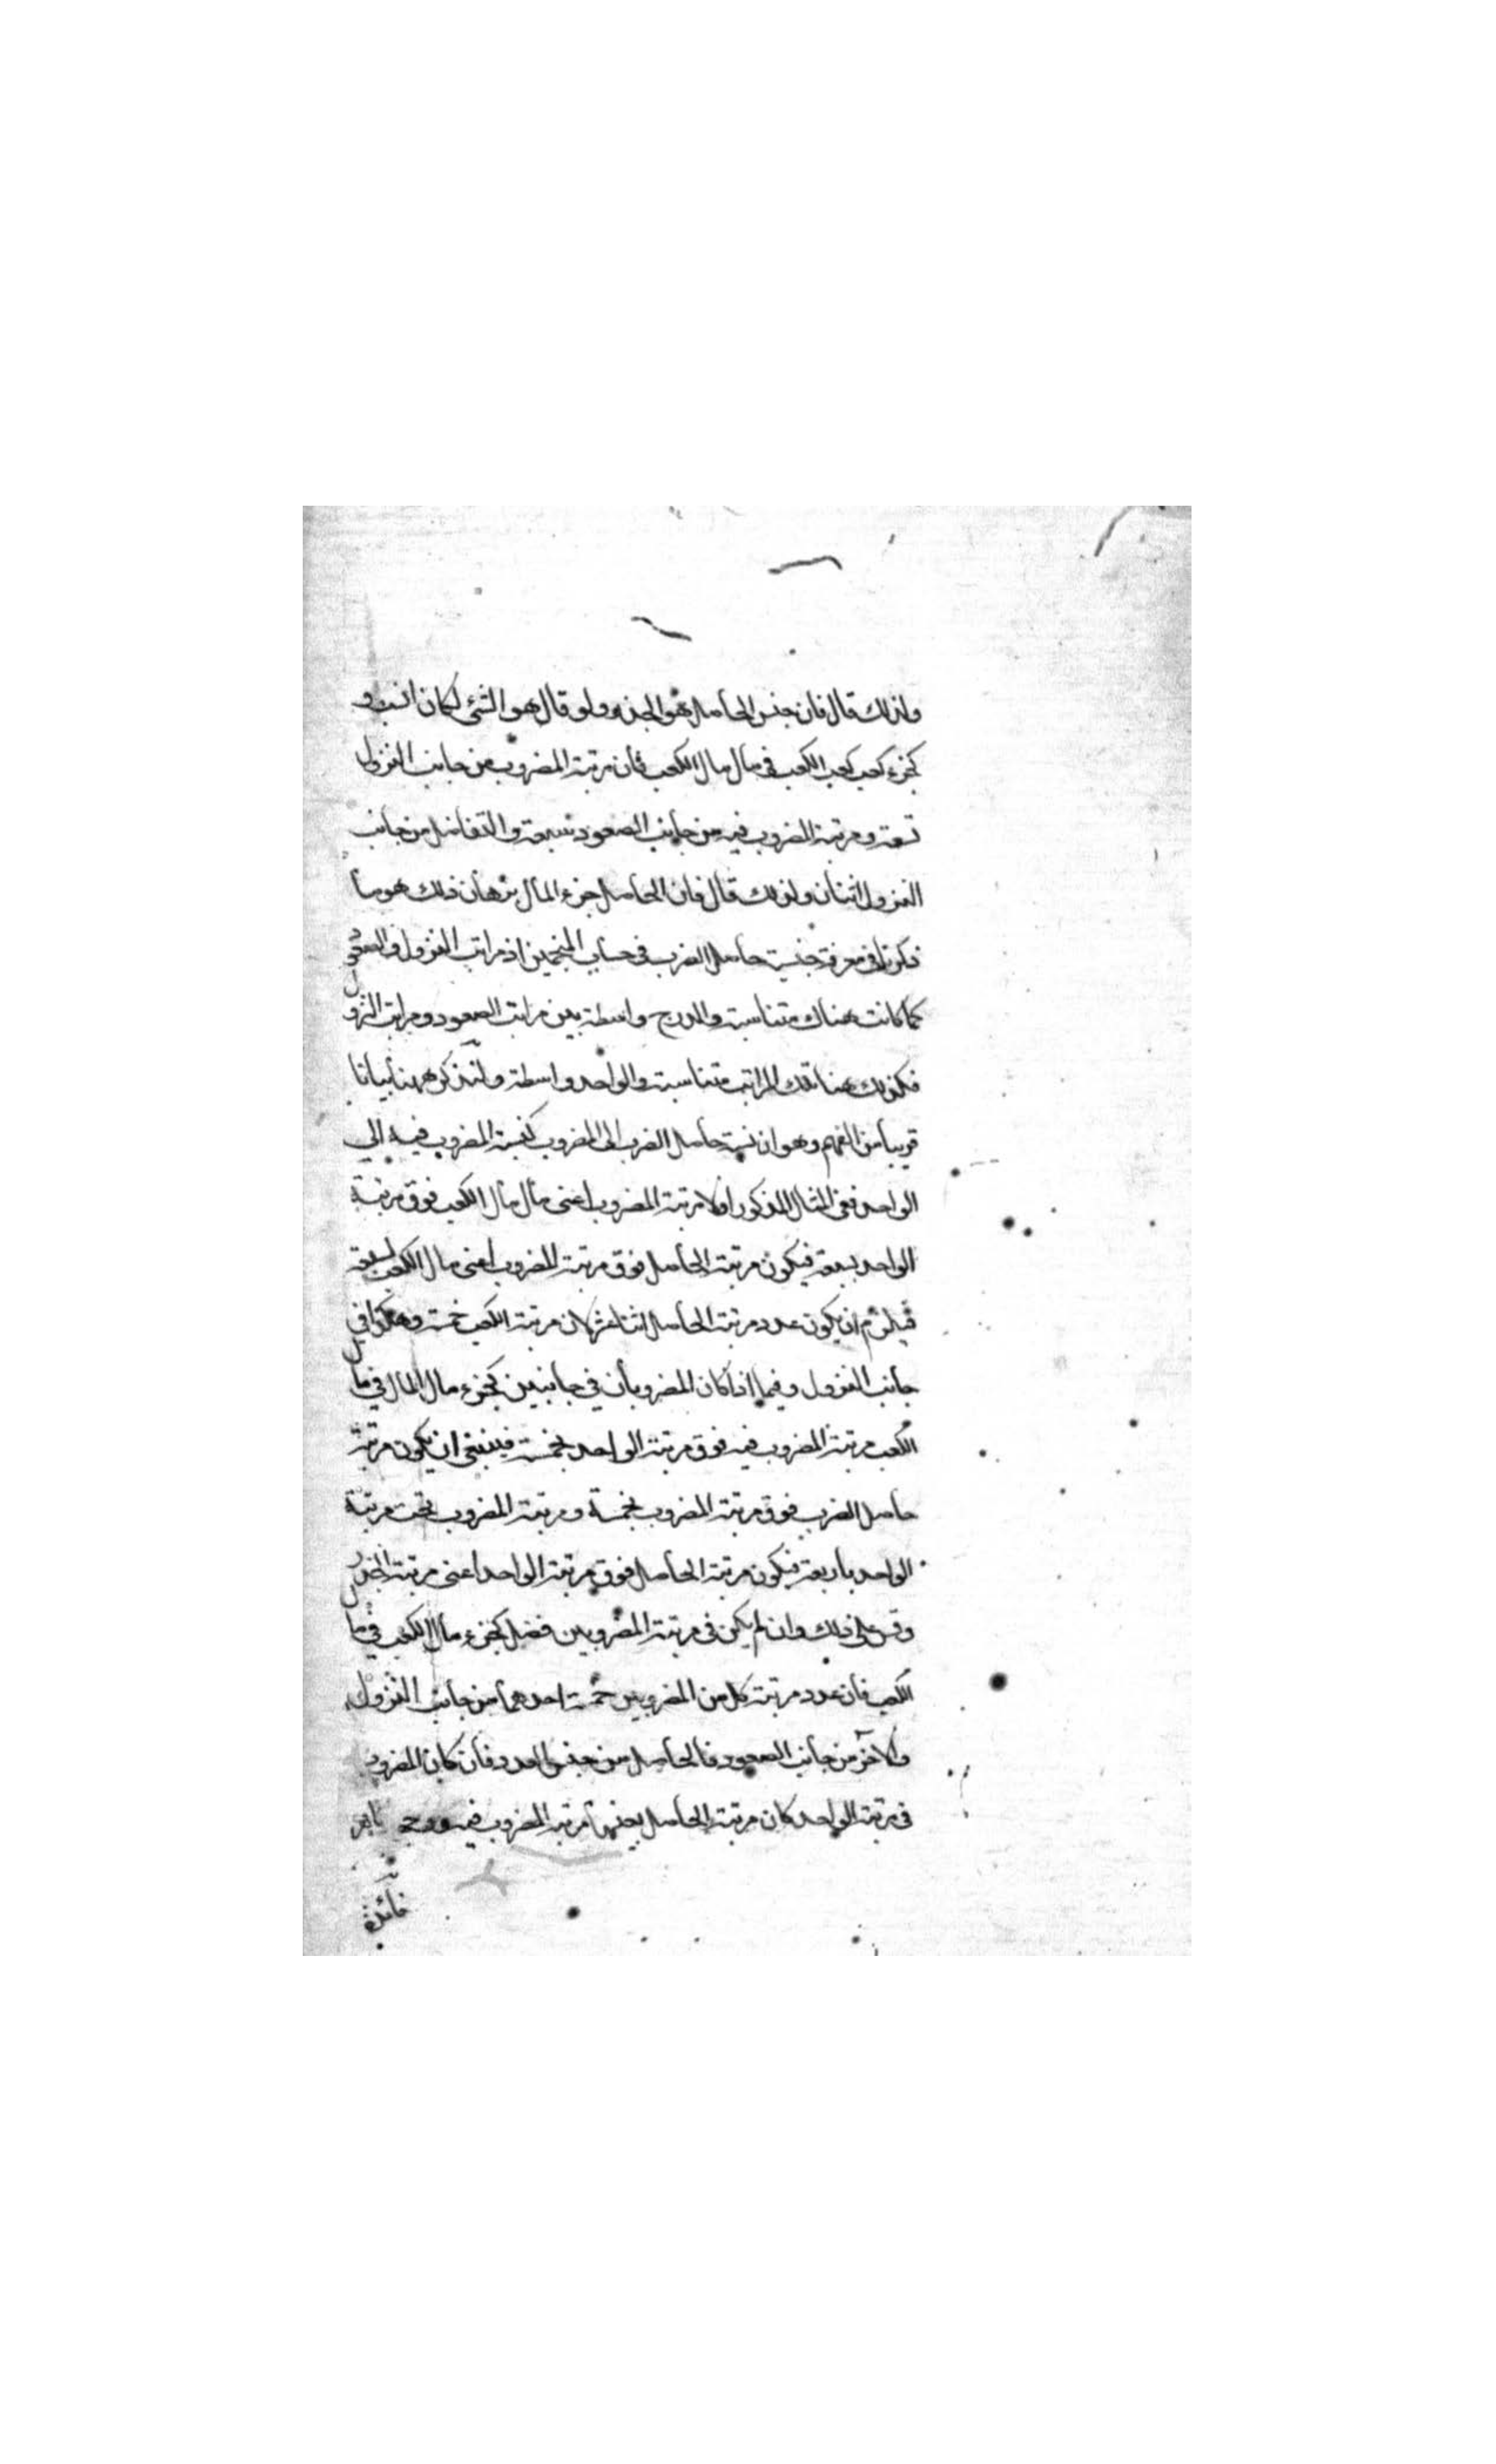 ولذلك قال فان جنس الحاصل هو الجذر ولو قال هو الشئ لكان انسب و
كجزء كعب كعب الكعب في مال مال الكعب فأن مرتبة المضروب من جانب النزول
تسعة ومرتبة المضروب فيه من جانب الصعود سبعة والتفاضل من جانب
النزول اثنان ولذلك قال فان الحاصل جزء المال برهان ذلك هو مأ
ذكرنا في معرفة جنسية حاصل الضرب في حساب المنجمين اذ مراتب النزول والصعود
كما كانت هناك متناسبة والدرج واسطة بين مراتب الصعود ومراتب النزول
فكذلك هنا تلك المراتب متناسبة والواحد واسطة ولنذكر ههنا بيانا
قريبأ من الفهم وهو ان نسبة حاصل الضرب الى المضروب كنسبة المضروب فيه الي
الواحد ففي المثال المذكور اولا مرتبة المضروب اعني مأل مأل الكعب فوق مرتبة
الواحد بسبعة فيكون مرتبة الحأصل فوق مرتبة المضروب اعني مال الكعب بسبعة
فيلزم ان يكون عدد مرتبة الحاصل اثنا عشر لان مرتبة الكعب خمسة وهكذا في
جأنب النزول وفيما اذا كان المضروبأن في جأنبين كجزء مال المال في مال
الكعب مرتبة المضروب فيه فوق مرتبة الواحد بخمسة فينبغي ان يكون مرتبة
حأصل الضرب فوق مرتبة المضروب بخمسة ومرتبة المضروب تحت مرتبة
الواحد بأربعة فيكون مرتبة الحأصل فوق مرتبة الواحد اعني مرتبة الجذر
وقس على ذلك وان لم يكن في مرتبة المضروبين فضل كجزء مأل الكعب في مال
الكعب فأن عدد مرتبة كل من المضروبين خمسة احدهمأ من جأنب النزول
والآخر من جأنب الصعود فألحأصل من جنس العدد فأن كان المضروب
في مرتبة الواحد كان مرتبة الحأصل بعينها مرتبة المضروب فيه
فأئدة